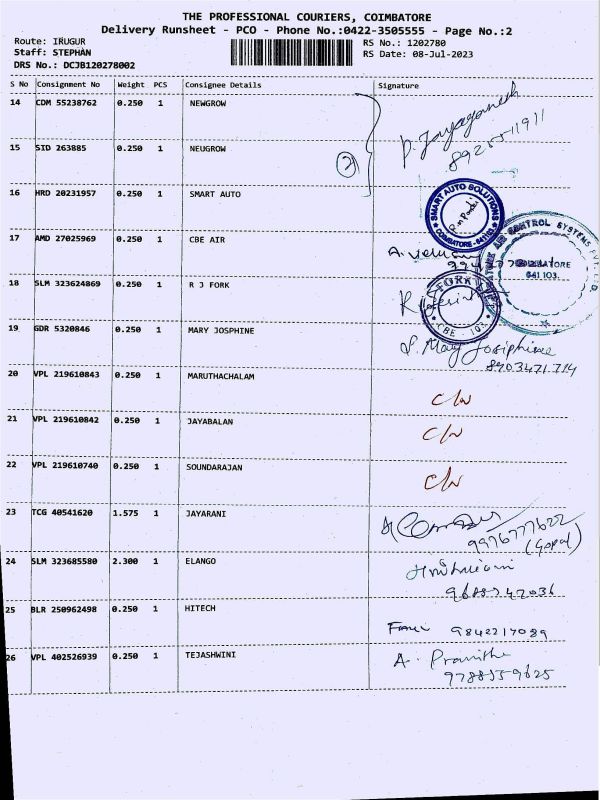 THE PROFESSIONAL COURIERS, COIMBATORE
Delivery Runsheet - PCO - Phone No.:0422-3505555 - Page No.:2
Route: IRUGUR RS No.: 1202780
Staff: STEPHAN RS Date: 08-Jul-2023
DRS No.: DCJB120278002
S No Consignment No Weight PCS Consignee Details Signature
14 CDM 55238762 0.250 1 NEWGROW
P. Jayaganesh
15 SID 263885 0.250 1 NEUGROW
2
16 HRD 20231957 0.250 1 SMART AUTO
SMART AUTO SOLUTIONS
COIMBATORE - 641103
17 AMD 27025969 0.250 1 CBE AIR
AIR CONTROL SYSTEMS PVT. LTD.
COIMBATORE
641 103.
18 SLM 323624869 0.250 1 R J FORK
FORK
CBE - 103
19 GDR 5320846 0.250 1 MARY JOSPHINE
S. Mary Josiphine
8903471714
20 VPL 219610843 0.250 1 MARUTHACHALAM
C/N
21 VPL 219610842 0.250 1 JAYABALAN
C/N
22 VPL 219610740 0.250 1 SOUNDARAJAN
C/N
23 TCG 40541620 1.575 1 JAYARANI
9976777622
(Gopal)
24 SLM 323685580 2.300 1 ELANGO
25 BLR 250962498 0.250 1 HITECH
9842217089
26 VPL 402526939 0.250 1 TEJASHWINI
A. Pranitha
9788559625